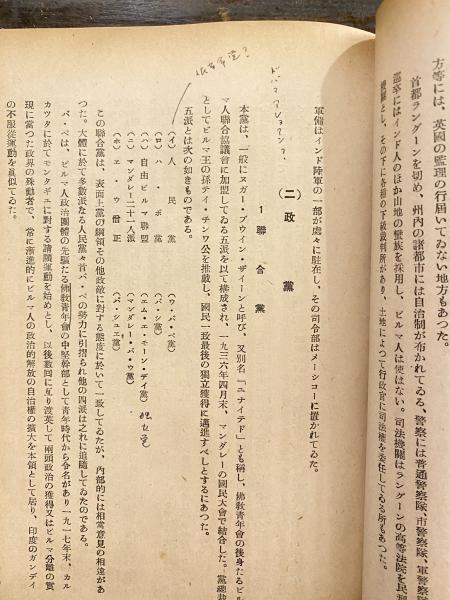 方等には、英國の監理の行屆いてゐない地方もあつた。
首都ラングーンを切め、州內の諸都市には自治制が布かれてゐる、警察には普通警察隊、市警察隊、軍警察隊
巡卒にはインド人のほか山地の蠻族を採用し、ビルマ人は使はない。司法機關はラングーンの高等法院を民刑
機關とし、その下に各種の下級裁判所があり、土地によつて行政官に司法權を委任してゐる所もあつた。
軍備はインド陸軍の一部が處々に駐在し、その司令部はメーシコーに置かれてゐた。
(二)政黨
1 聯合黨
本黨は、一般にヌガー・ブウイン・ザイーンと呼び、又別名「ユナイテド」とも稱し、佛敎靑年會の後身たるビル
マ人聯合協議會に加盟してゐる五派を以て構成され、一九三六年四月末、マンダレーの國民大會で結合した。黨總裁
としてビルマ王の孫テイ・チンワ公を推戴し、國民一致最後の獨立獲得に邁進すべしとするにあつた。
五派とは次の如きものである。
(イ)人民黨(ウ・バ・ペ黨)
(ロ)ハ・ボ黨(バ・シ黨)
(ハ)自由ビルマ聯盟(エム・エ・モーン・デイ黨)
(ニ)マンダレー二十一人派(マンダレー・バ・ウ黨)
(ホ)エ・ウ僧正(バ・シユエ黨)
この聯合黨は、表面上黨の綱領その他政敵に對する態度に於いて一致してゐたが、內部的には相當意見の相違があ
つた。大體に於て多數派なる人民黨々首バ・ペの勢力に引摺られ他の四派は之れに追隨してゐたのである。
バ・ペは、ビルマ人政治團體の先驅たる佛敎靑年會の中堅幹部として靑年時代から令名があり一九一七年末、カル
カツタに於てモンタギユに對する請願運動を始めとし、以後數回に亙り渡英して兩頭政治の獲得又はビルマ分離の實
現に當つた政界の殊勳者で、常に漸進的にビルマ人の政治的解放の自治權の擴大を本領として居り、印度のガンデイ
の不服從運動を眞似てゐた。